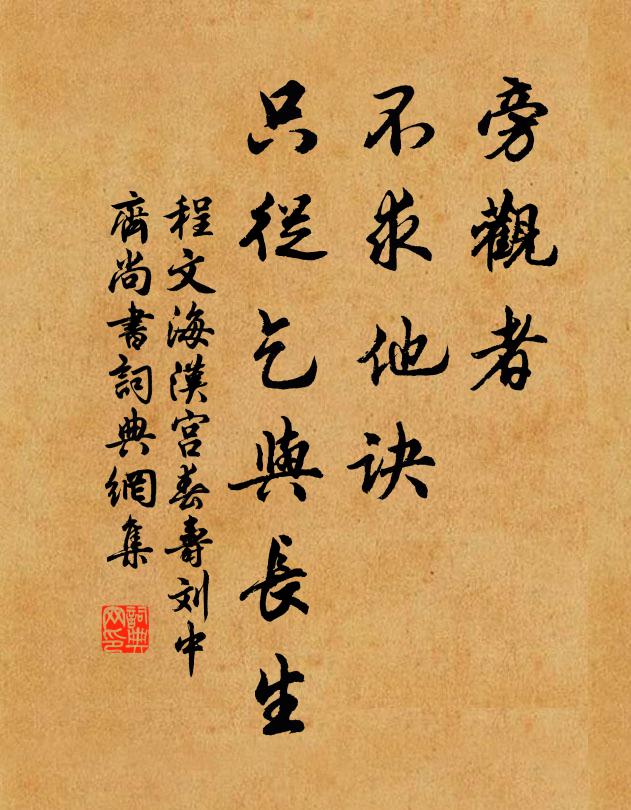 旁觀者
不求他訣
只從乞與長生
程文海漢宮春壽刘中
齋尚書詞典網集
詞典
网印